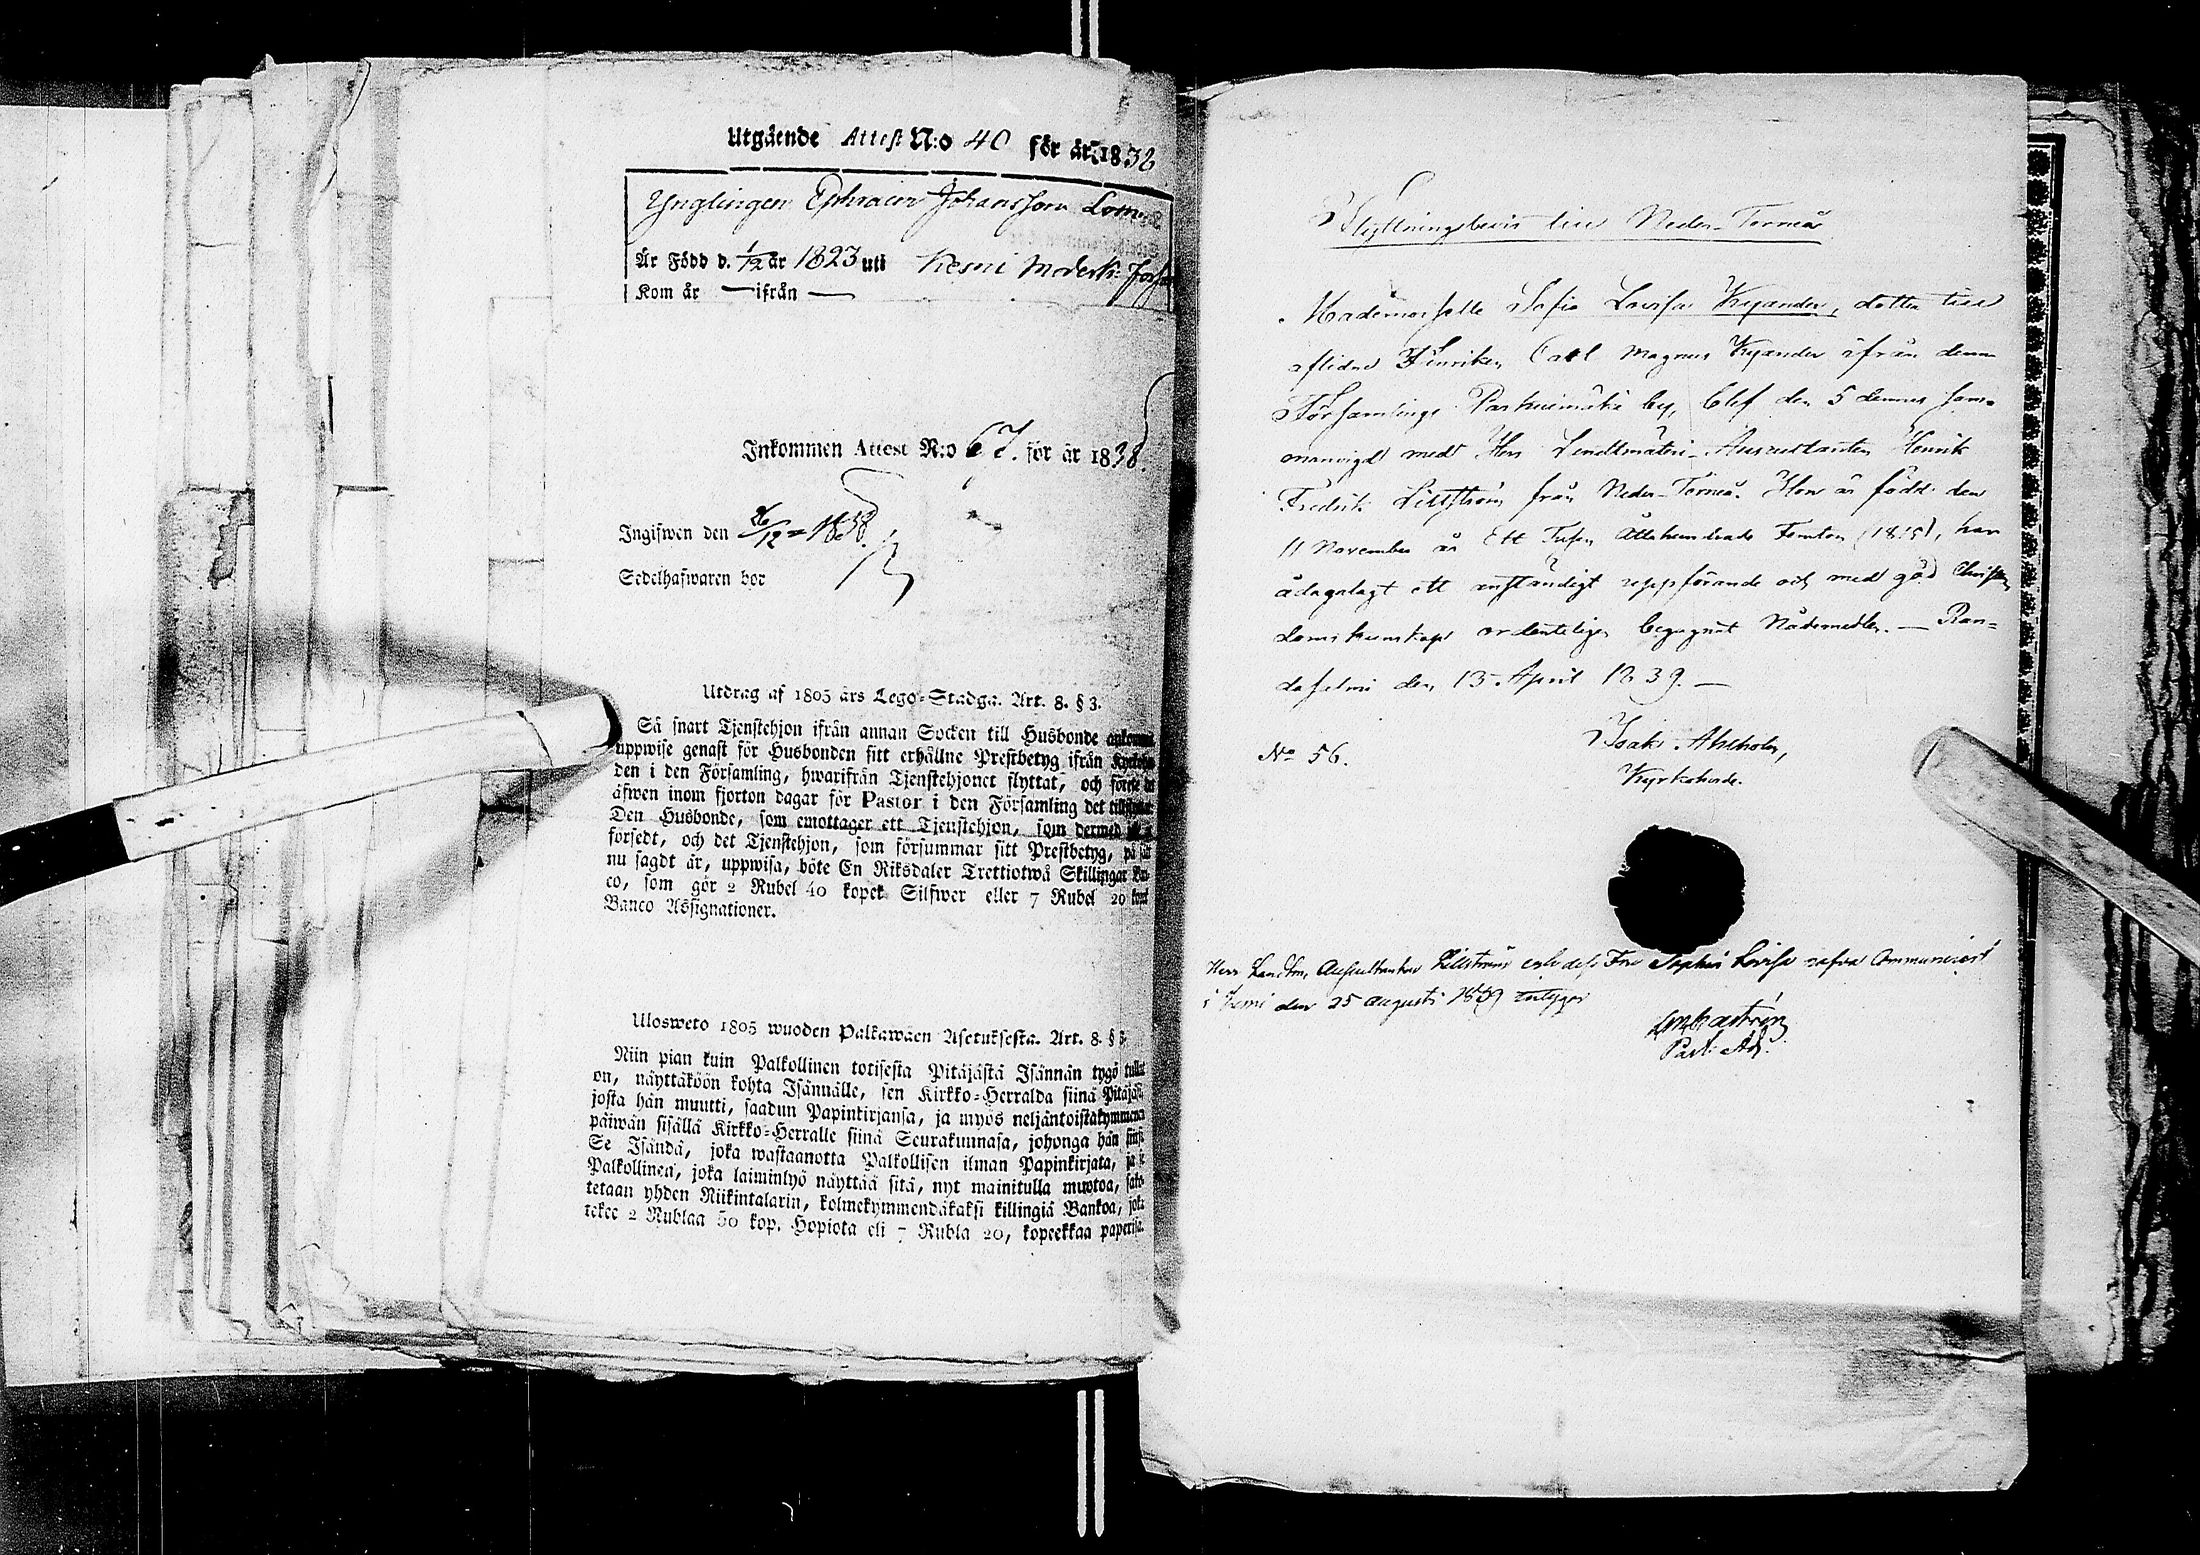 Utgående Attest N:o 40 för år 1838
Ynglingen Ephraim Johansson
Är Född d. 1/12 år 1823 uti Kemi Moderk:
Kom år — ifrån —
Inkommen Attest N:o 67. för år 1838.
Ingifwen den 26/12 1838.
Sedelhafwaren bor
Utdrag af 1805 års Lego-Stadga. Art. 8. § 3.
Så snart Tjenstehjon ifrån annan Socken till Husbonde
uppwise genast för Husbonden sitt erhållne Prestbetyg ifrån
den i den Församling, hwarifrån Tjenstehjonet flyttat, och
äfwen inom fjorton dagar för Pastor i den Församling det
Den Husbonde, som emottager ett Tjenstehjon, som dermed
försedt, och det Tjenstehjon, som försummar sitt Prestbetyg, på
nu sagdt är, uppwisa, böte En Riksdaler Trettiotwå Skillingar
co, som gör 2 Rubel 40 kopek Silfwer eller 7 Rubel 20
Banco Assignationer.
Ulosweto 1805 wuoden Palkawäen Asetuksesta. Art. 8. § 3.
Niin pian kuin Palkollinen totisesta Pitäjästä Isännän tygö
on, näyttäköön kohta Isännälle, sen Kirkko-Herralda siinä
josta hän muutti, saadun Papinkirjansa, ja myös neljäntoistakymmenen
päiwän sisällä Kirkko-Herralle siinä Seurakunnasa, johonga hän
Se Isändä, joka wastaanotta Palkollisen ilman Papinkirjata, ja
Palkollinen, joka laiminlyö näyttää sitä, nyt mainitulla muotoa,
tetaan yhden Riikintalarin, kolmekymmendäkaksi killingiä Bankoa,
tekee 2 Rublaa 50 kop. Hopiota eli 7 Rubla 20, kopeekkaa
Flyttningsbevis till Neder-Torneå
Mademoiselle Sofia Lovisa Kyander, dotter till
aflidne Fänriken Carl Magnus Kyander ifrån denna
Församlings by, blef den 5 dennes sam-
manvigd med Herr Landtmäteri-Auscultanten Henrik
Fredrik Lillström från Neder-Torneå. Hon är född den
11 November år Ett Tusen Åttahundrade Femton (1815), har
ådagalagt ett anständigt uppförande och med god Christen-
doms kunskap ordenteligen begagnat Nådemedlen. — Ran-
dasalmi den 13 April 1839. —
No 56.
Isak
Kyrkoherde.
Herr Landtm. Auscultanten Lillström och dess Fru Sophia Lovisa Communicerat
i Kemi den 25 augusti 1839 intygar
Past: Adj.